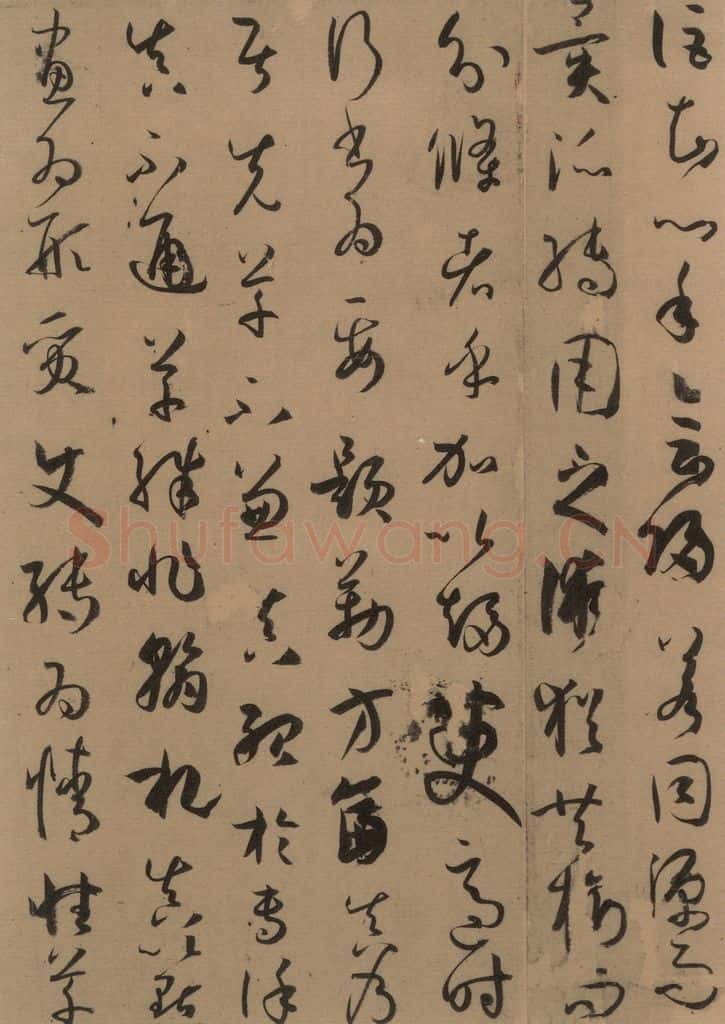 詎知心手會歸若同源而
異派轉用之術猶共樹而
分條者乎加以趨變適時
行書為要題勒方畐真乃
居先草不兼真殆於專謹
真不通草殊非翰札真以點
畫為形質使轉為情性草
Shufawang.CN